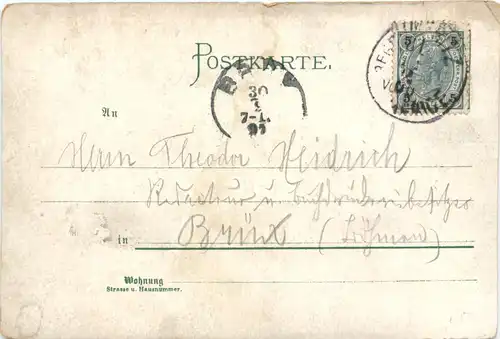 POSTKARTE.
5 5
30
7-1.
An
Herrn Theodor Heidrich
Redacteur u. Buchdruckereibesitzer
in Brüx (Böhmen)
Wohnung
Strasse u. Hausnummer.